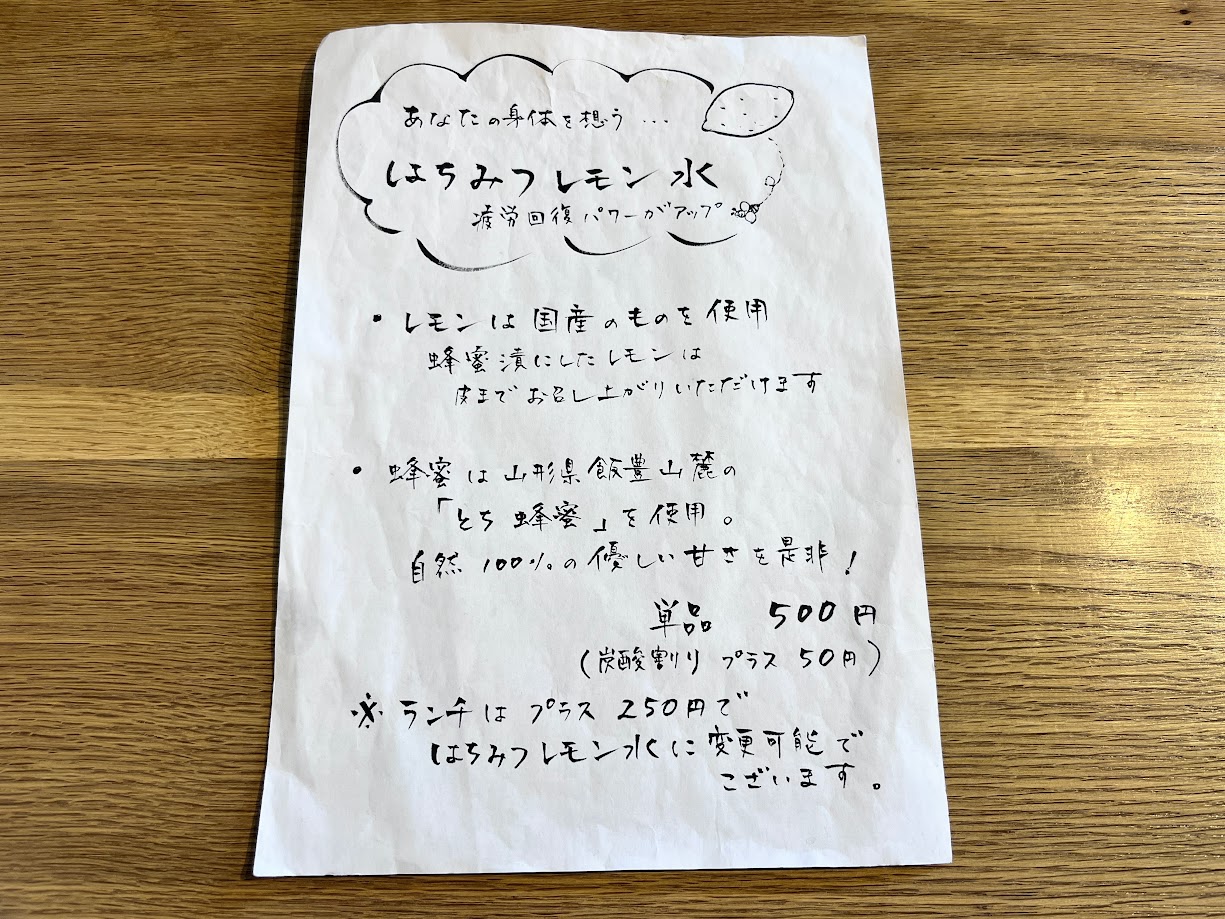 あなたの身体を想う...
はちみつレモン水
疲労回復パワーがアップ
・レモンは国産のものを使用
蜂蜜漬にしたレモンは
皮までお召し上がりいただけます
・蜂蜜は山形県飯豊山麓の
「とち蜂蜜」を使用。
自然100%の優しい甘さを是非!
単品 500円
(炭酸割り プラス 50円)
※ランチは プラス 250円で
はちみつレモン水に変更可能で
ございます。